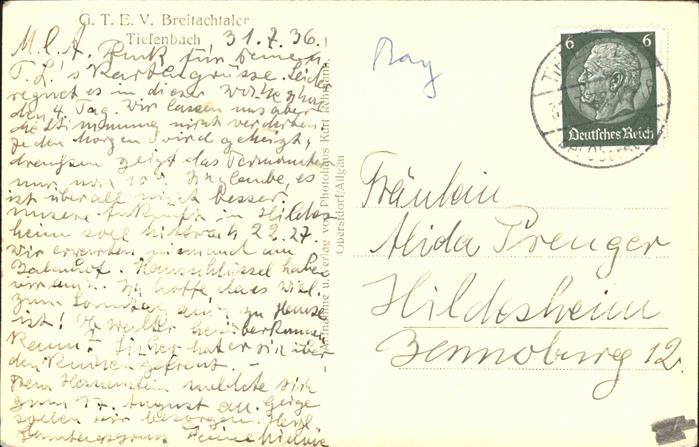 G. T. E. V. Breitachtaler
Tiefenbach
31.7.36.
M. L. A. Dank für Deine u.
T. L.'s Kartengrüsse. Leider
regnet es in dieser Woche schon
den 4. Tag. Wir lassen uns aber
die Stimmung nicht verderben.
Jeden Morgen wird geheizt,
draußen zeigt das Thermometer
nur 10°. Ich glaube, es
ist überall nicht besser.
Unsere Ankunft in Hildes
heim soll Mittwoch 22.27.
Wir erwarten niemand am
Bahnhof. Hausschlüssel haben
wir auch. Ich hoffe, dass
zum Sonntag zu Hause
ist! Ob Walter herüberkommen
kann? Sicher hat er sich über
den Kuchen gefreut.
Frau meldete sich
zum 17. August an. Geige
spielen wir besorgen. Herzl.
Sonntagsgruss Deine
Aufnahme u. Verlag von Photohaus Kurt
Oberstdorf/Allgäu
May
6 6
Deutsches Reich
Fräulein
Alida Prenger
Hildesheim
Bennoburg 12.